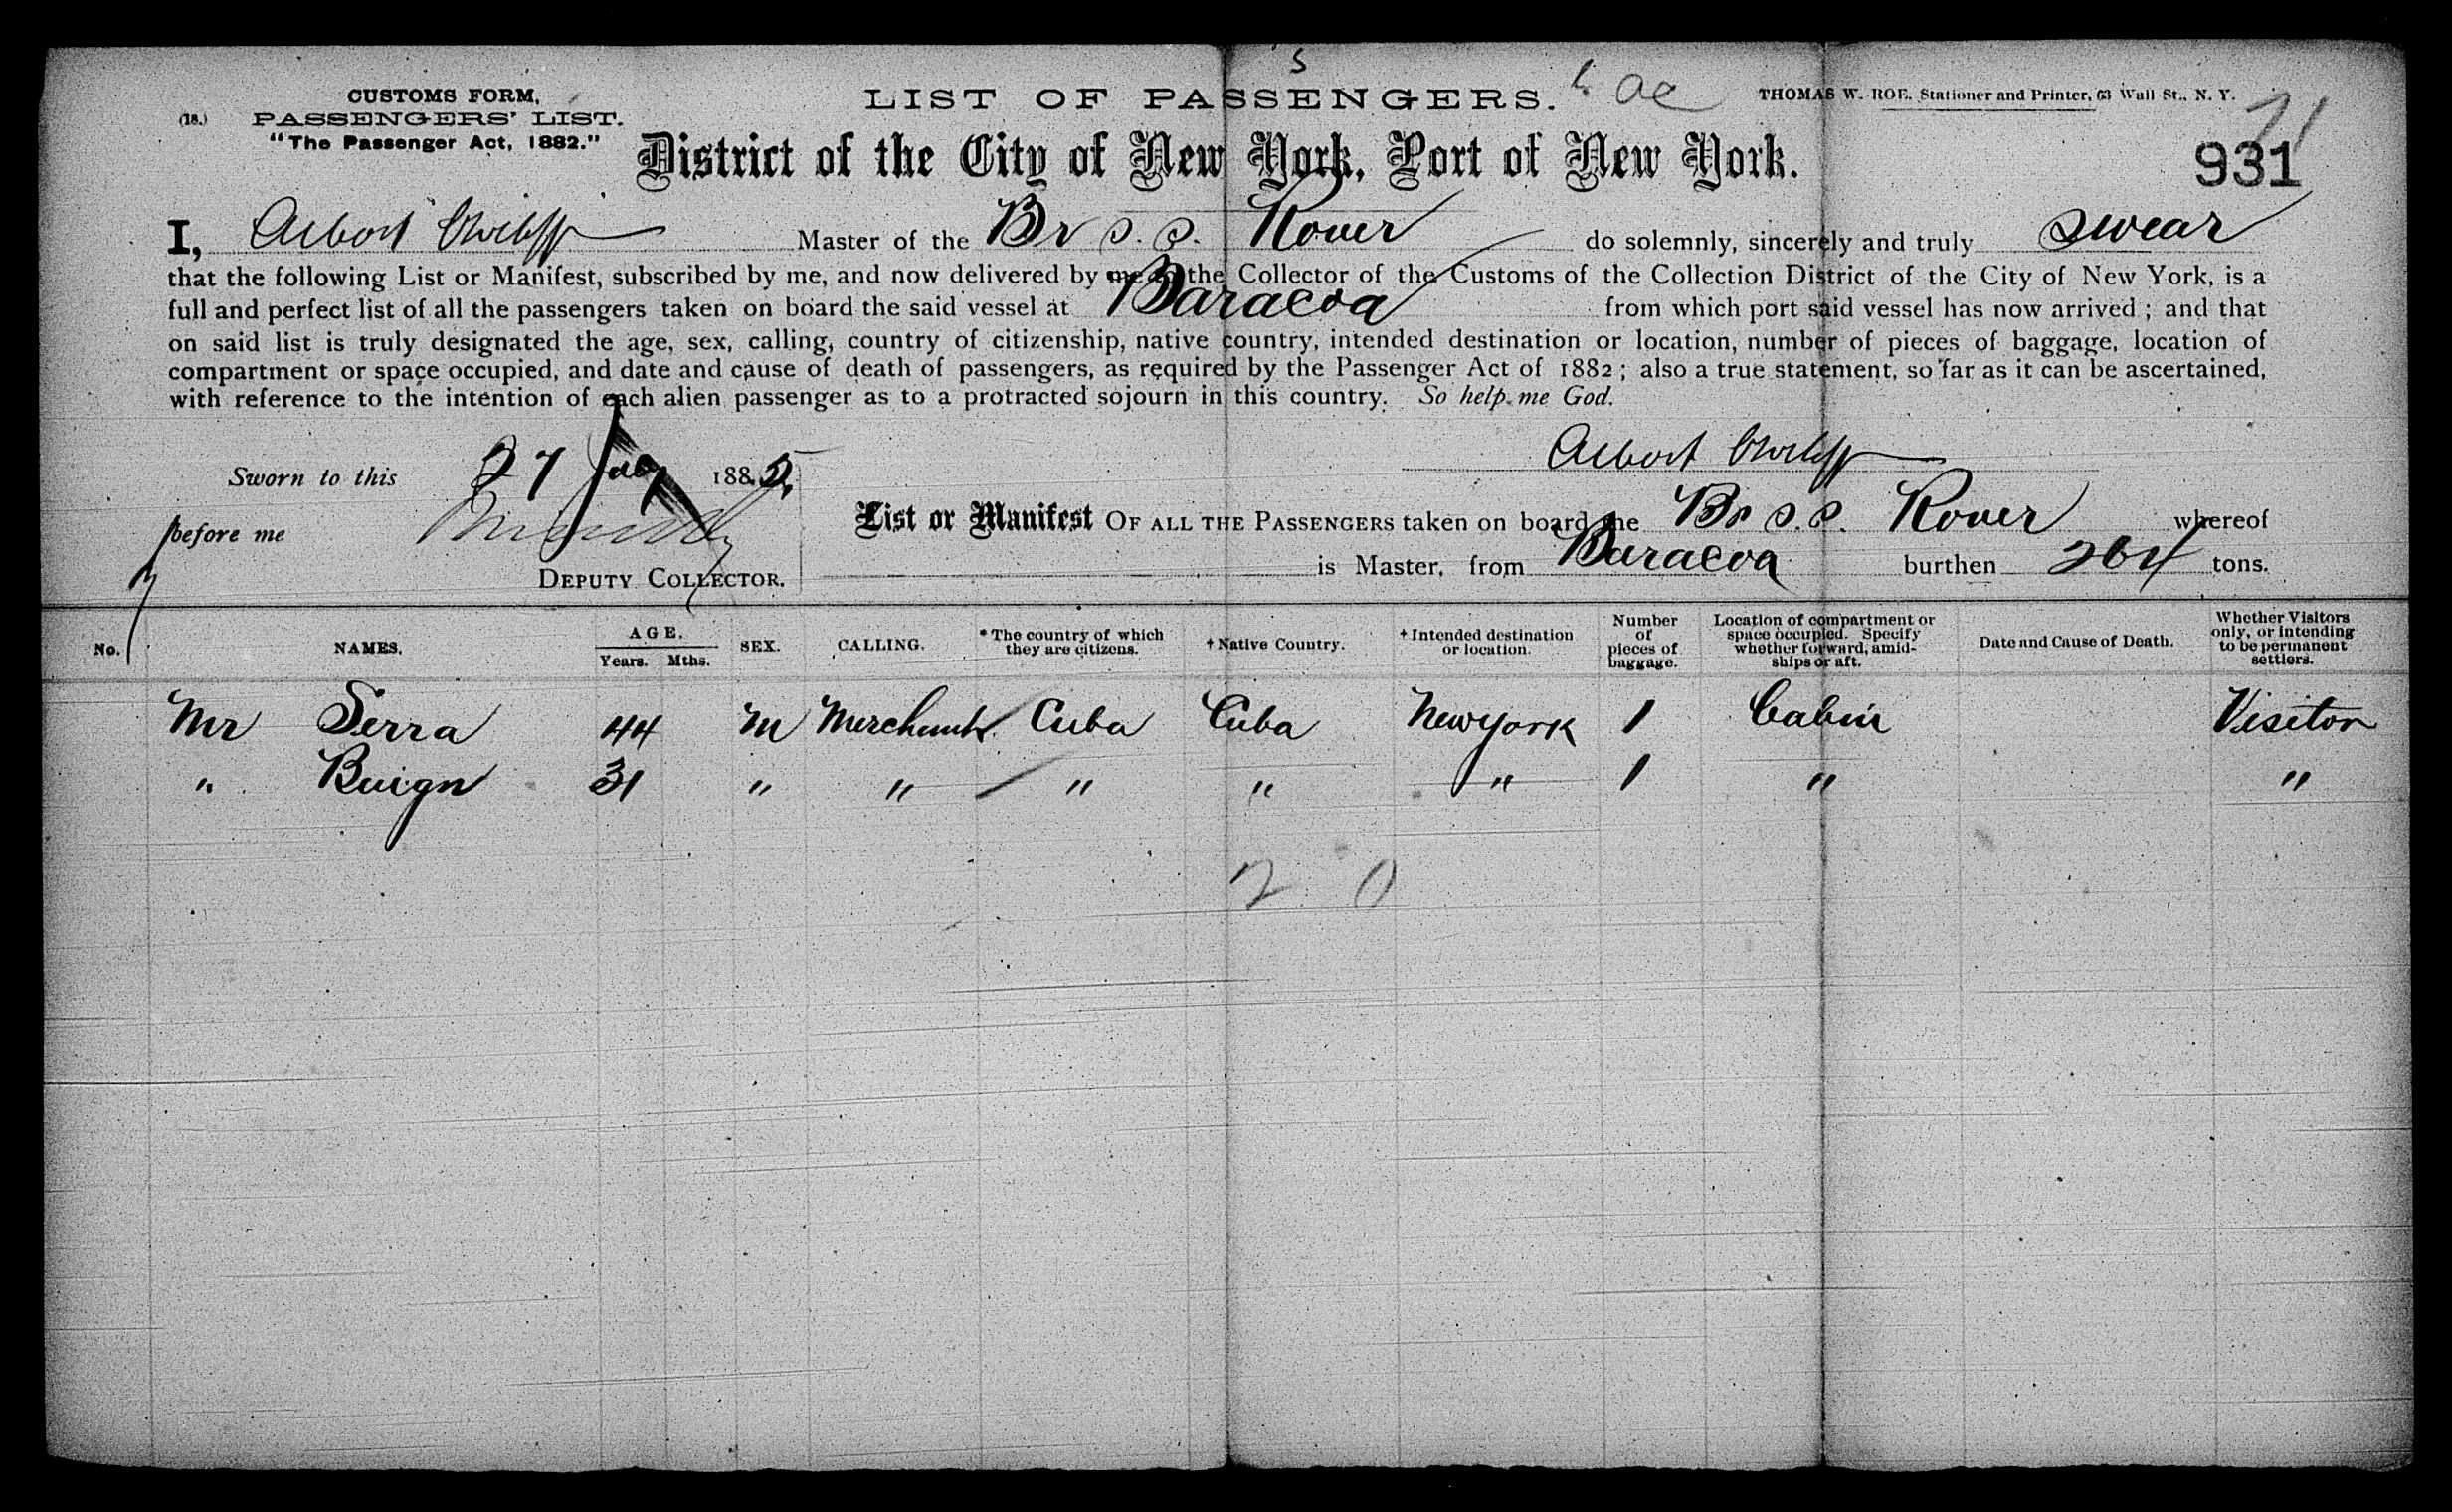 s
CUSTOMS FORM.
LIST OF PASSENGERS.
THOMAS W. ROE. Stationer and Printer, 63 Wall St., N. Y.
(18.) PASSENGERS' LIST.
71
"The Passenger Act, 1882."
District of the City of New York, Port of New York.
931
I, Albert Master of the Br S.S. Rover do solemnly, sincerely and truly swear
that the following List or Manifest, subscribed by me, and now delivered by me to the Collector of the Customs of the Collection District of the City of New York, is a
full and perfect list of all the passengers taken on board the said vessel at Baracoa from which port said vessel has now arrived; and that
on said list is truly designated the age, sex, calling, country of citizenship, native country, intended destination or location, number of pieces of baggage, location of
compartment or space occupied, and date and cause of death of passengers, as required by the Passenger Act of 1882; also a true statement, so far as it can be ascertained,
with reference to the intention of each alien passenger as to a protracted sojourn in this country. So help me God.
Albert
Sworn to this 27 1885.
List or Manifest OF ALL THE PASSENGERS taken on board the Br S.S. Rover whereof
before me
is Master, from Baracoa burthen 264 tons.
DEPUTY COLLECTOR.
No. NAMES. AGE. Years. Mths. SEX. CALLING. *The country of which they are citizens. †Native Country. †Intended destination or location. Number of pieces of baggage. Location of compartment or space occupied. Specify whether forward, amidships or aft. Date and Cause of Death. Whether Visitors only, or intending to be permanent settlers.
Mr Serra 44 M Merchant Cuba Cuba New York 1 Cabin Visitor
" Buign 31 " " " " " 1 " "
2 0